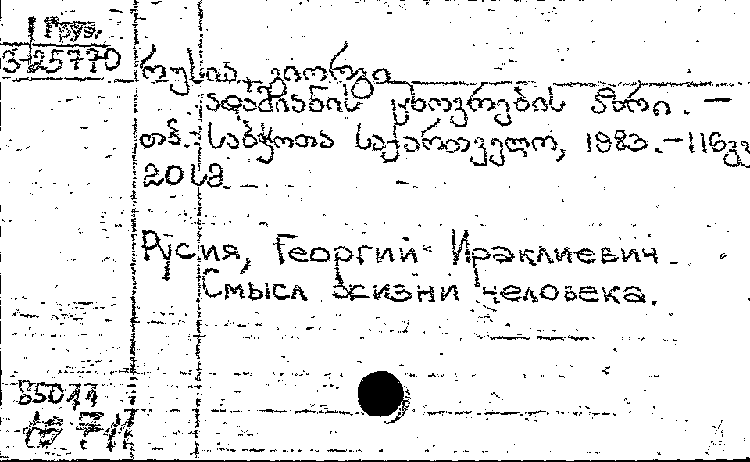 Груз.
3-25770
რუსია, გიორგი
ადამიანის ცხოვრების აზრი. —
თბ.: საბჭოთა საქართველო, 1983.-116გვ
20სმ
Русия, Георгий Ираклиевич
Смысл жизни человека.
85044